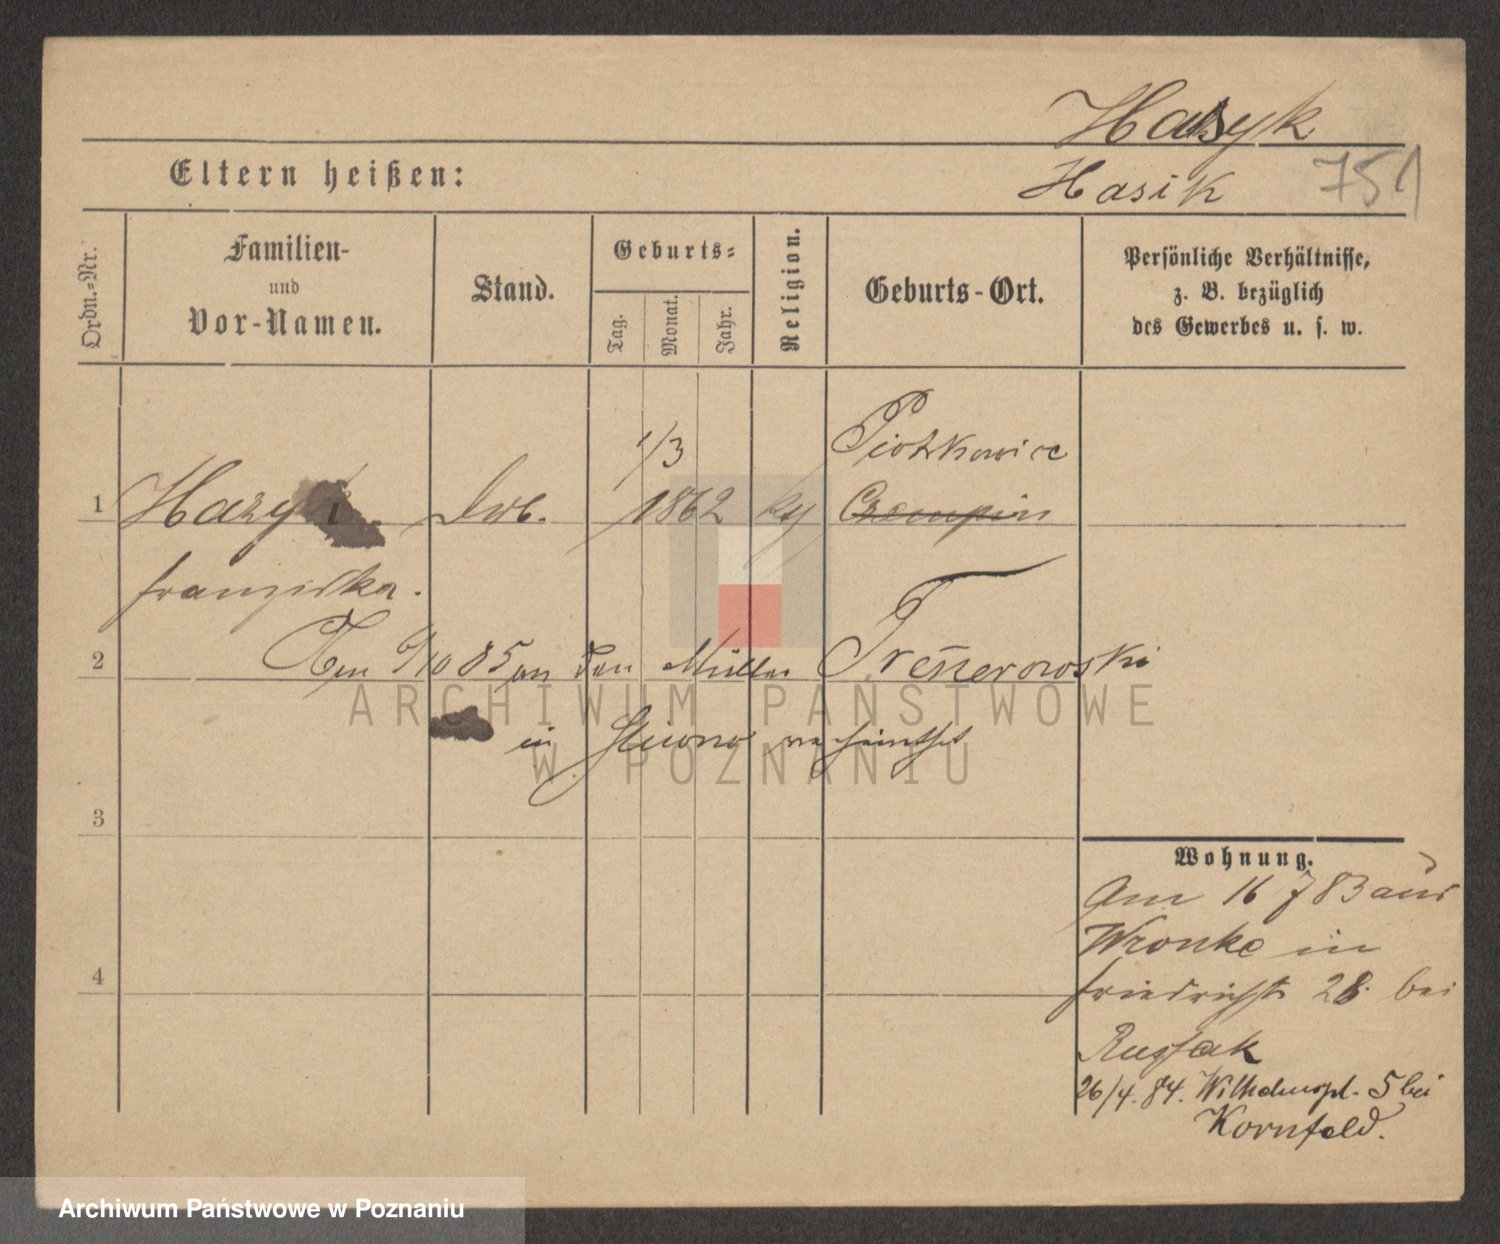 Hasyk
Eltern heißen:
Hasik
751
Ordn.=Nr.
Familien-
und
Vor-Namen.
Stand.
Geburts=
Tag.
Monat.
Jahr.
Religion.
Geburts-Ort.
Persönliche Verhältnisse,
z. B. bezüglich
des Gewerbes u. s. w.
1/3
Piotrkowice
1
Hazyk
1862
Czempin
Franziska.
2
Am 6/10 85 an den Müller
in
3
Wohnung.
Am 16 7 83 aus
Wronke in
4
Friedrichst. 28. bei
Russak
26/4. 84. Wilhelmspl. 5 bei
Kornfeld.
ARCHIWUM PAŃSTWOWE
W POZNANIU
Archiwum Państwowe w Poznaniu